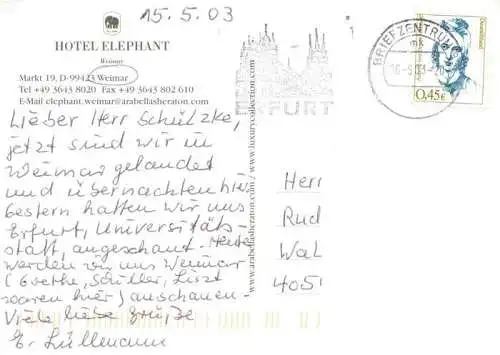 15.5.03
HOTEL ELEPHANT
Weimar
Markt 19, D-99423 Weimar
Tel +49 3643 8020 Fax +49 3643 802 610
E-Mail elephant.weimar@arabellasheraton.com
Lieber Herr Schulzke,
jetzt sind wir in
Weimar gelandet
und übernachten hier.
Gestern hatten wir uns
Erfurt, Universitäts-
stadt, angeschaut. Heute
werden wir uns Weimar
(Goethe, Schiller, Liszt
waren hier) anschauen.
Viele liebe Grüße
E. Lüllemann
www.arabellasheraton.com / www.luxurycollection.com
ERFURT
BRIEFZENTRUM
mk
16-5.03
Deutschland
0,45€
Herr
Rud
Wal
4051